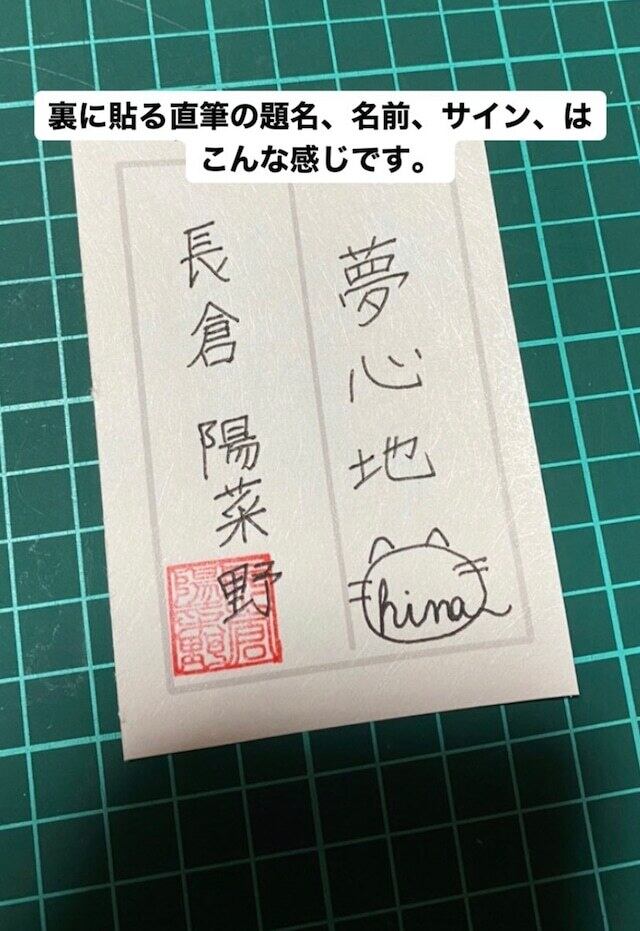 裏に貼る直筆の題名、名前、サイン、は
こんな感じです。
夢心地
hina
長倉 陽菜野